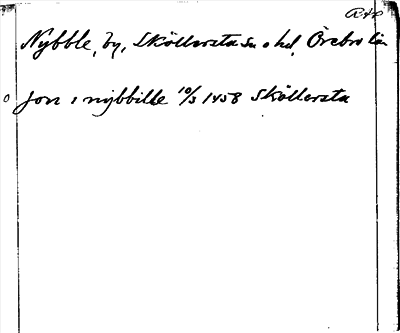 Nybble, by, Sköllersta sn o hd, Örebro län
jon i nybbille 10/3 1458 Sköllersta